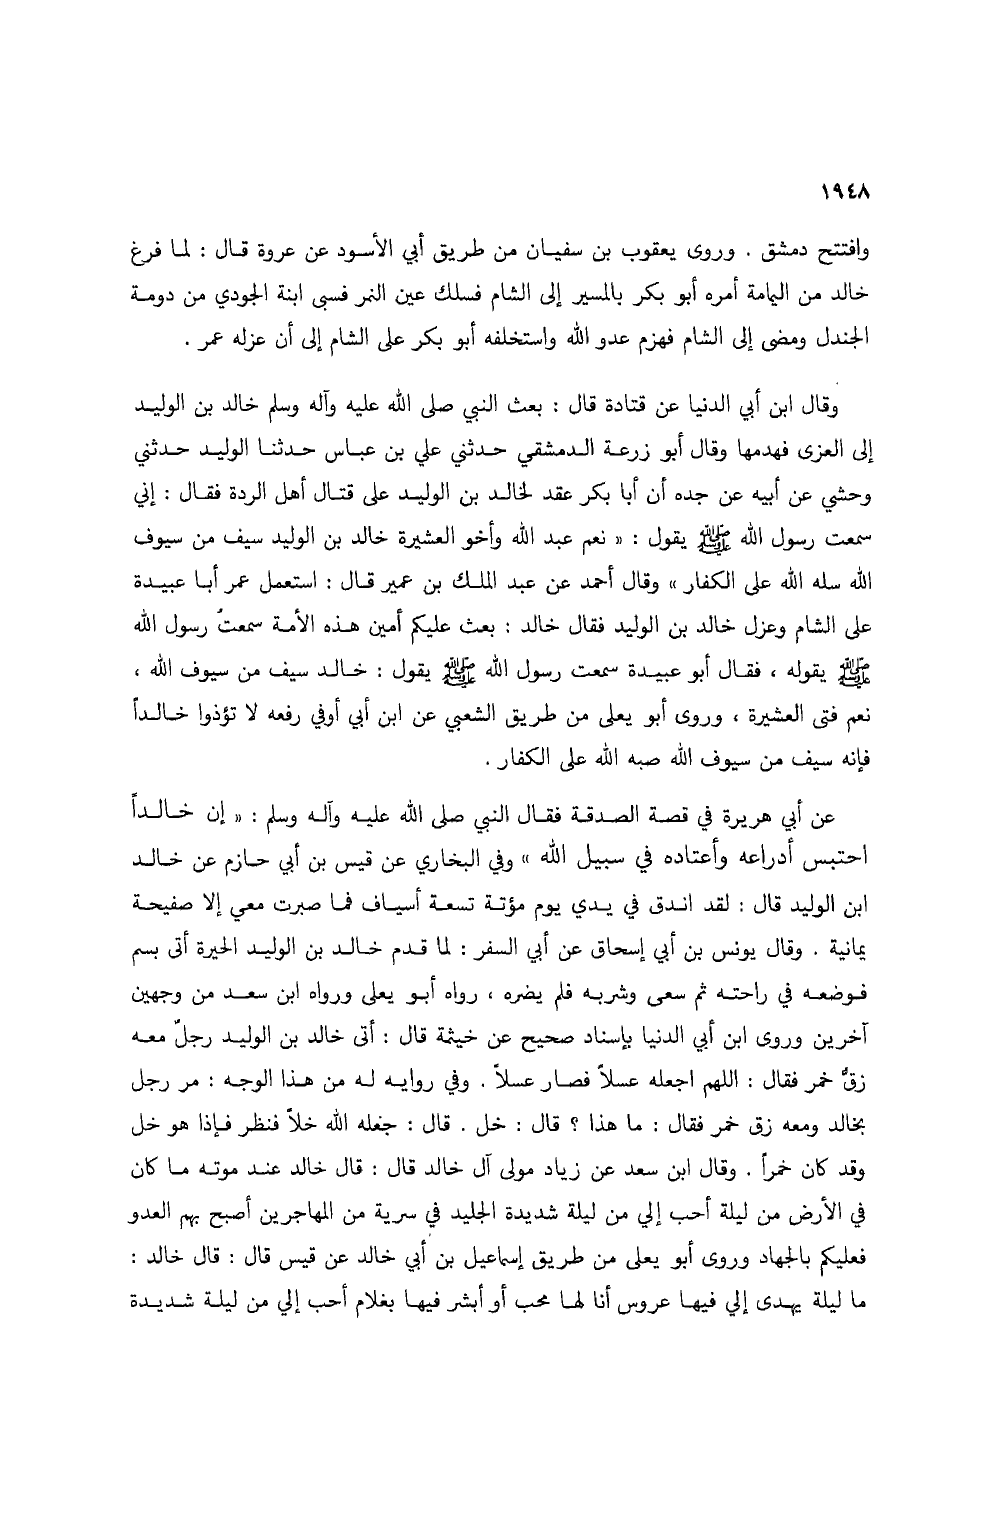 ١٩٤٨
وافتتح دمشق . وروى يعقوب بن سفيان من طريق أبي الأسود عن عروة قال : لما فرغ
خالد من اليمامة أمره أبو بكر بالمسير إلى الشام فسلك عين التمر فسبى ابنة الجودي من دومة
الجندل ومضى إلى الشام فهزم عدو الله واستخلفه أبو بكر على الشام إلى أن عزله عمر .
وقال ابن أبي الدنيا عن قتادة قال : بعث النبي صلى الله عليه وآله وسلم خالد بن الوليد
إلى العزى فهدمها وقال أبو زرعة الدمشقي حدثني علي بن عباس حدثنا الوليد حدثني
وحشي عن أبيه عن جده أن أبا بكر عقد لخالد بن الوليد على قتال أهل الردة فقال : إني
سمعت رسول الله ﷺ يقول : « نعم عبد الله وأخو العشيرة خالد بن الوليد سيف من سيوف
الله سله الله على الكفار » وقال أحمد عن عبد الملك بن عمير قال : استعمل عمر أبا عبيدة
على الشام وعزل خالد بن الوليد فقال خالد : بعث عليكم أمين هذه الأمة سمعتُ رسول الله
ﷺ يقوله ، فقال أبو عبيدة سمعت رسول الله ﷺ يقول : خالد سيف من سيوف الله ،
نعم فتى العشيرة ، وروى أبو يعلى من طريق الشعبي عن ابن أبي أوفي رفعه لا تؤذوا خالداً
فإنه سيف من سيوف الله صبه الله على الكفار .
عن أبي هريرة في قصة الصدقة فقال النبي صلى الله عليه وآله وسلم : « إن خالداً
احتبس أدراعه وأعتاده في سبيل الله » وفي البخاري عن قيس بن أبي حازم عن خالد
ابن الوليد قال : لقد اندق في يدي يوم مؤتة تسعة أسياف فما صبرت معي إلا صفيحة
يمانية . وقال يونس بن أبي إسحاق عن أبي السفر : لما قدم خالد بن الوليد الحيرة أتى بسم
فوضعه في راحته ثم سعى وشربه فلم يضره ، رواه أبو يعلى ورواه ابن سعد من وجهين
آخرين وروى ابن أبي الدنيا بإسناد صحيح عن خيثمة قال : أتى خالد بن الوليد رجلٌ معه
زقٌّ خمر فقال : اللهم اجعله عسلاً فصار عسلاً . وفي روايه له من هذا الوجه : مر رجل
بخالد ومعه زق خمر فقال : ما هذا ؟ قال : خل . قال : جعله الله خلاً فنظر فإذا هو خل
وقد كان خمراً . وقال ابن سعد عن زياد مولى آل خالد قال : قال خالد عند موته ما كان
في الأرض من ليلة أحب إلي من ليلة شديدة الجليد في سرية من المهاجرين أصبح بهم العدو
فعليكم بالجهاد وروى أبو يعلى من طريق إسماعيل بن أبي خالد عن قيس قال : قال خالد :
ما ليلة يهدى إلي فيها عروس أنا لها محب أو أبشر فيها بغلام أحب إلي من ليلة شديدة